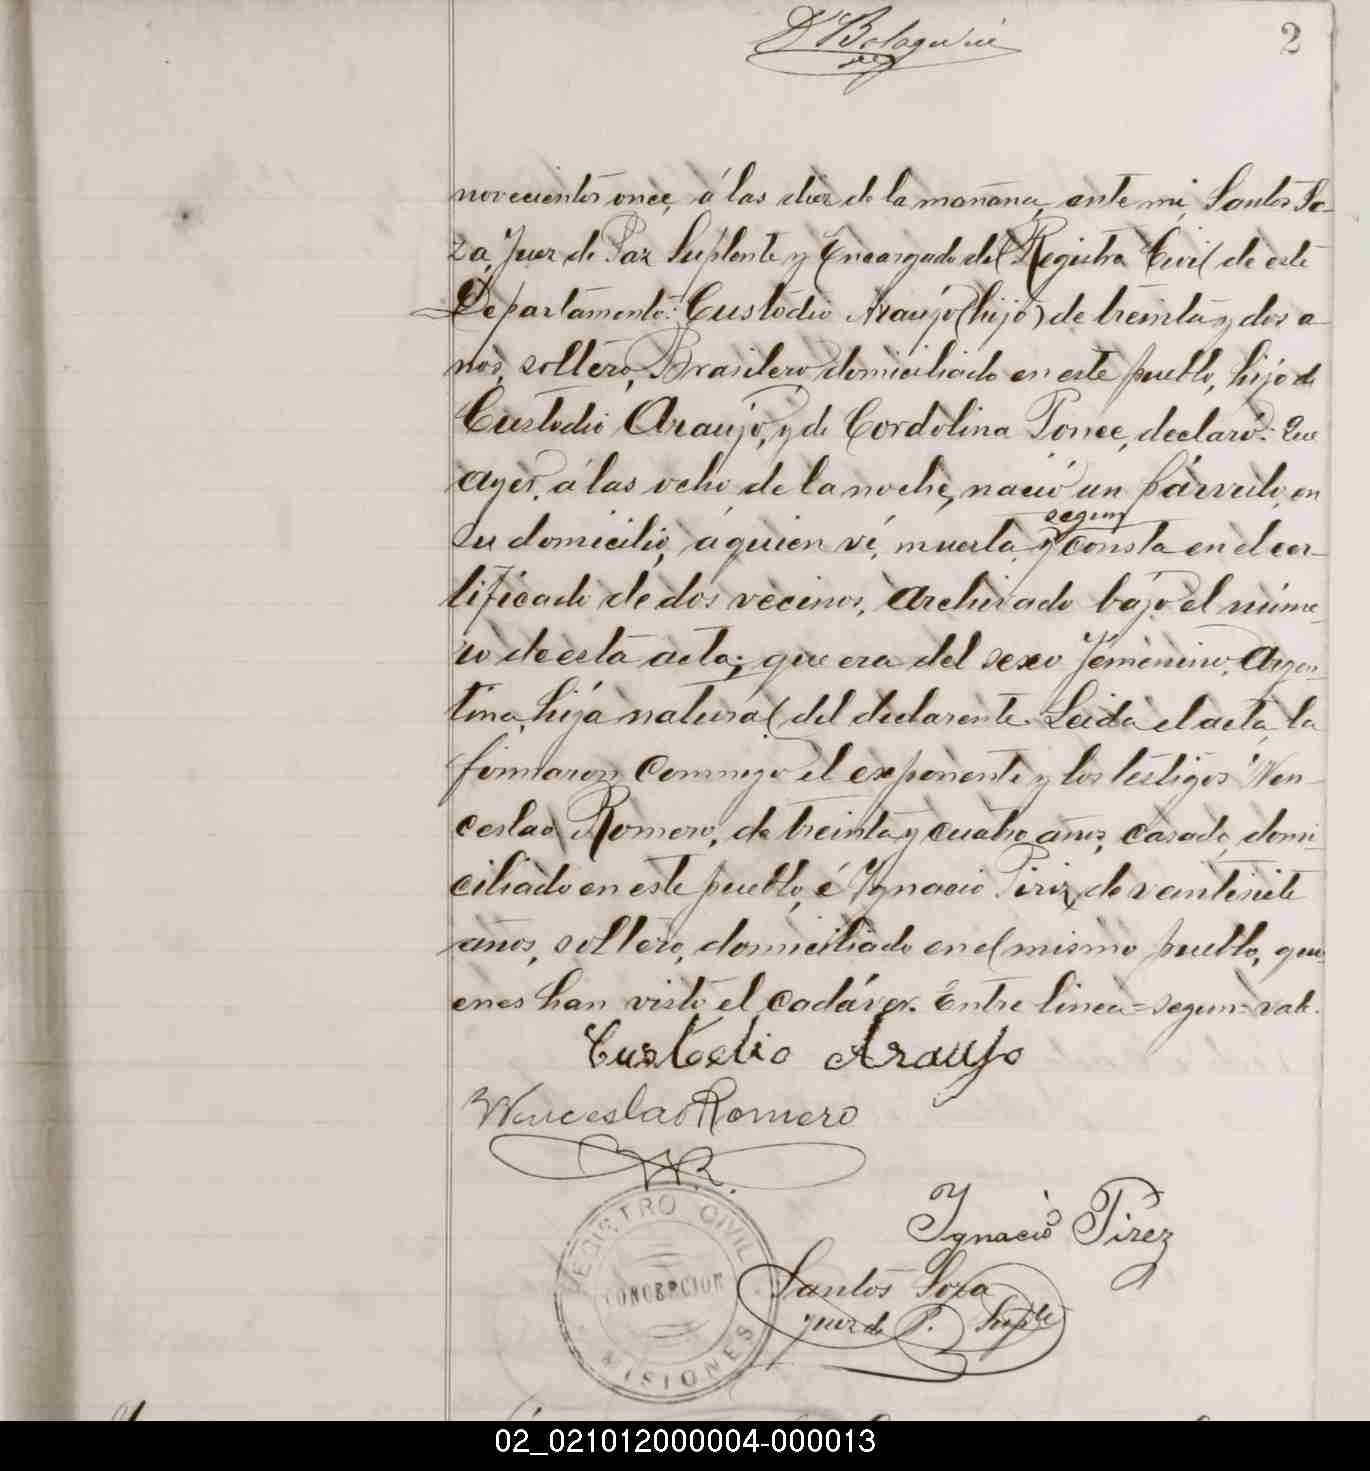 2
novecientos once, á las diez de la mañana, ante mi, Santos So-
za, Juez de Paz Suplente y Encargado del Registro Civil de este
Departamento: Custodio Araujo (hijo) de treinta y dos a-
ños, soltero, Brasilero domiciliado en este pueblo, hijo de
Custodio Araujo, y de Cordolina Ponce, declaró: Que
ayer, á las ocho de la noche, nació un párvulo, en
segun
su domicilio, á quien ví, muerta y consta en el cer-
tificado de dos vecinos, archivado bajo el núme-
ro de esta acta; que era del sexo femenino, Argen-
tina, hija natural del declarente. Leida el acta, la
firmaron commigo el exponente y los testigos Wen-
ceslao Romero, de treinta y cuatro años, casado, domi-
ciliado en este pueblo, é Ygnacio Piriz, de veintisiete
años, soltero, domiciliado en el mismo pueblo, qui-
enes han visto el cadáver. Entre linea=segun=vale.
Custodio Araujo
Wenceslao Romero
W.R.
Ygnacio Pirez
Santos Soza
Juez de P. Suplte
REGISTRO CIVIL
CONCEPCION
MISIONES
02_021012000004-000013